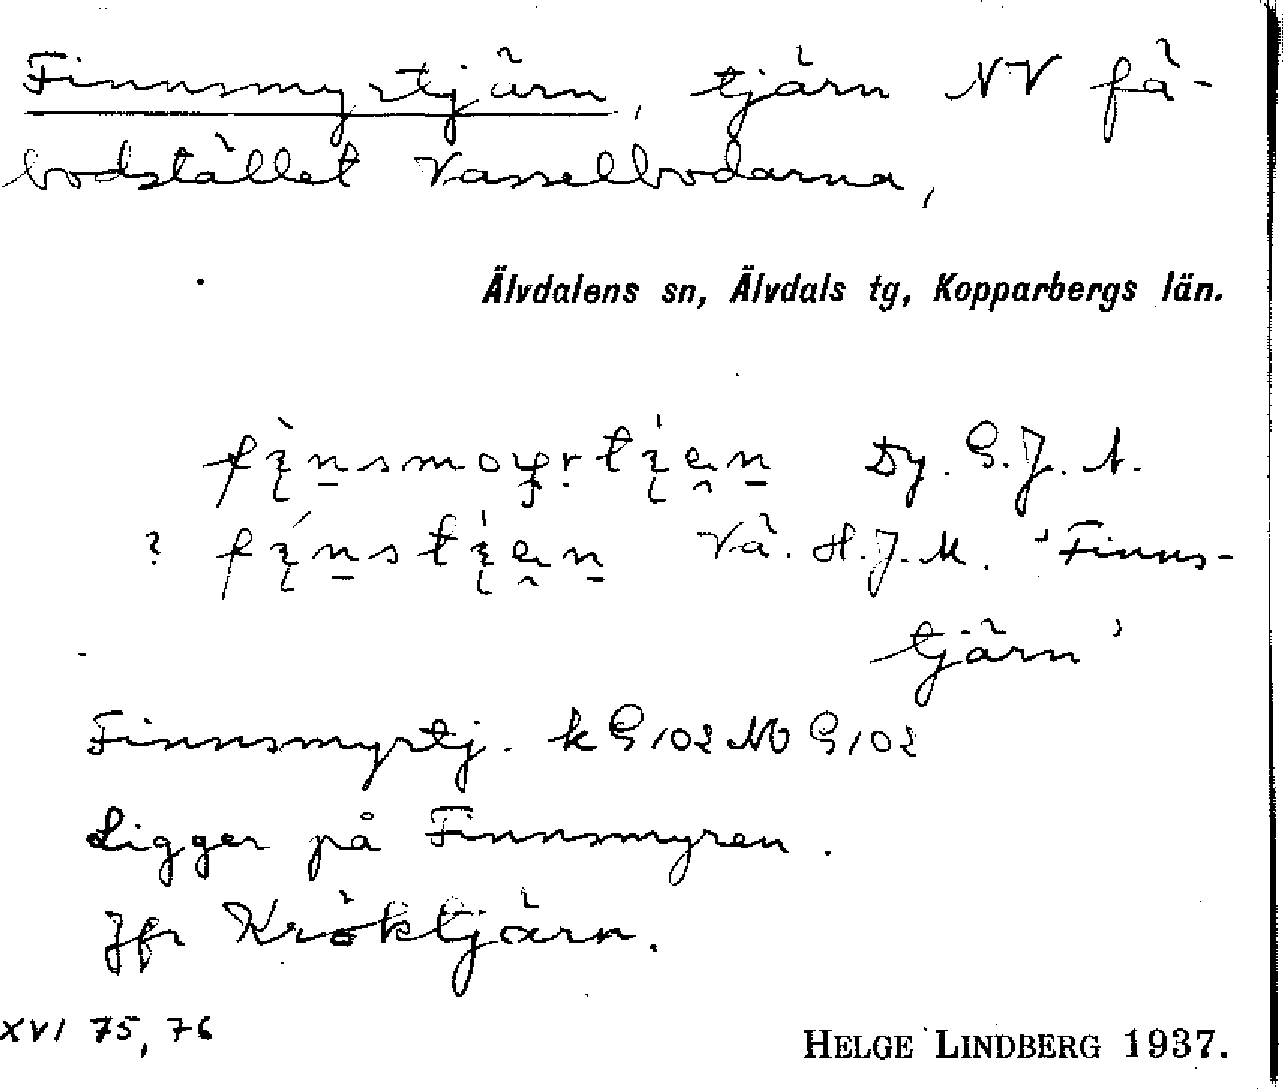 Finnsmyrtjärn, tjärn NV fä-
bodstället Vasselbodarna,
Älvdalens sn, Älvdals tg, Kopparbergs län.
Dy. G.J.A.
? Vå. H.J.M. 'Finns-
tjärn'
Finnsmyrtj. k G102 NO G102
Ligger på Finnsmyren.
Jfr Kröktjärn.
XVI 75, 76
HELGE LINDBERG 1937.